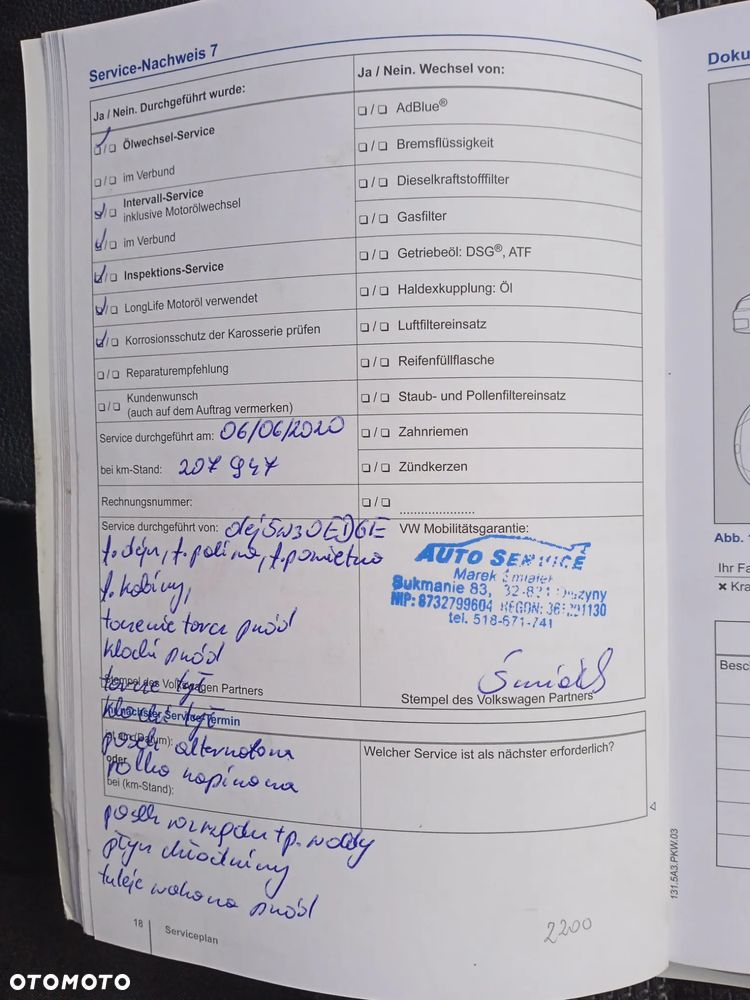 Service-Nachweis 7
Ja / Nein. Durchgeführt wurde:
❏/❏ Ölwechsel-Service
❏/❏ im Verbund
❏/❏ Intervall-Service
inklusive Motorölwechsel
❏/❏ im Verbund
❏/❏ Inspektions-Service
❏/❏ LongLife Motoröl verwendet
❏/❏ Korrosionsschutz der Karosserie prüfen
❏/❏ Reparaturempfehlung
❏/❏ Kundenwunsch
(auch auf dem Auftrag vermerken)
Service durchgeführt am: 06/06/2020
bei km-Stand: 207 947
Rechnungsnummer:
Service durchgeführt von: olej 5W30 EDGE
f. oleju, f. paliwa, f. powietrza
f. kabiny,
toczenie tarcz przód
klocki przód
tarcze tył
Stempel des Volkswagen Partners
klocki tył
nächster Service-Termin
ist am (Datum):
pasek alternatora
oder
rolka napinana
bei (km-Stand):
pasek rozrządu + p. wody
płyn chłodniczy
tuleje wahacza przód
Ja / Nein. Wechsel von:
❏/❏ AdBlue®
❏/❏ Bremsflüssigkeit
❏/❏ Dieselkraftstofffilter
❏/❏ Gasfilter
❏/❏ Getriebeöl: DSG®, ATF
❏/❏ Haldexkupplung: Öl
❏/❏ Luftfiltereinsatz
❏/❏ Reifenfüllflasche
❏/❏ Staub- und Pollenfiltereinsatz
❏/❏ Zahnriemen
❏/❏ Zündkerzen
❏/❏ .....................
VW Mobilitätsgarantie:
AUTO SERVICE
Marek
Sukmanie 83, 32-831
NIP: 8732799604 REGON:
tel. 518-671-741
Stempel des Volkswagen Partners
Welcher Service ist als nächster erforderlich?
131.5A3.PKW.03
18
Serviceplan
2200
Doku
Abb.
Ihr Fa
✖ Kra
Besc
OTOMOTO